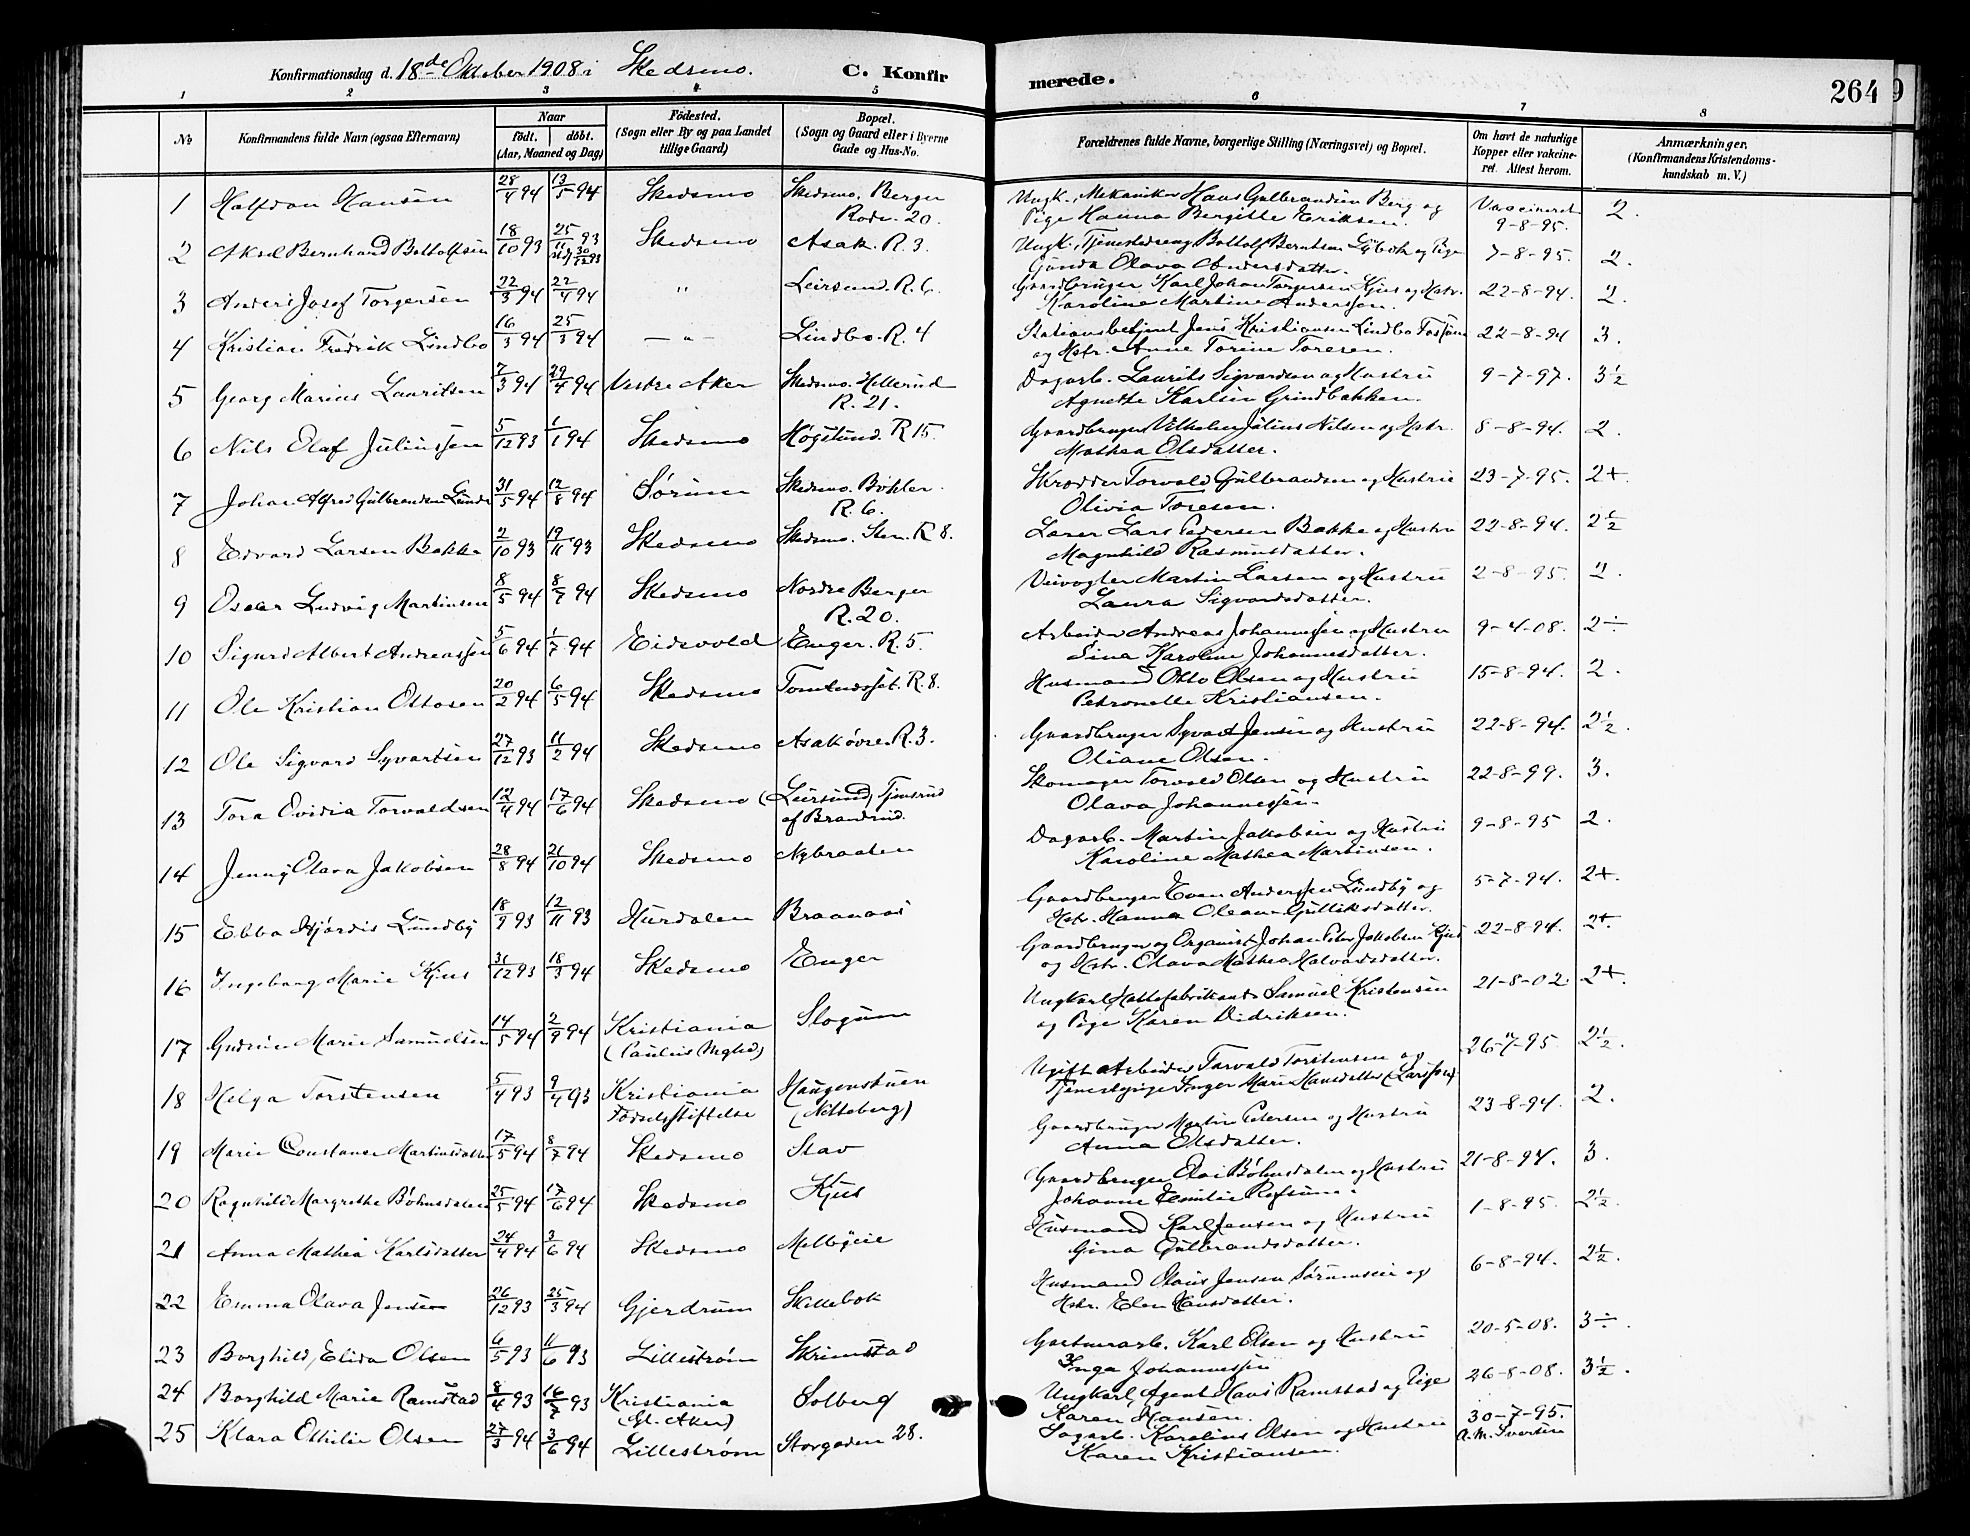 Konfirmationsdag d. 18de Oktober 1908 i Skedsmo. C. Konfir
merede. 264
1 2 3 4 5 6 7 8
No Konfirmandens fulde Navn (ogsaa Efternavn) Naar født. døbt. (Aar, Maaned og Dag) Fødested. (Sogn eller By og paa Landet tillige Gaard) Bopæl. (Sogn og Gaard eller i Byerne Gade og Hus-No. Forældrenes fulde Navne, borgerlige Stilling (Næringsvei) og Bopæl. Om havt de naturlige Kopper eller vakcineret. Attest herom. Anmærkninger. (Konfirmandens Kristendomskundskab m. V.)
1 Halfdan Hansen 28/4 94 13/5 94 Skedsmo Skedsmo. Berger Rode. 20. Ungk. Mekaniker Hans Gulbrandsen Berg og Pige Hanna Bergitte Eriksen. Vaccineret 9-8-95. 2.
2 Aksel Bernhard Bottolfsen 18/10 93 25/11 93 Skedsmo Asak. R. 3. Ungk., Tjenestedreng Bottolf Berntsen og Pige Gunda Olava Andersdatter. 7-8-95. 2.
3 Anders Josef Torgersen 22/3 94 22/4 94 " Leirsund. R. 6. Gaardbruger Karl Johan Torgersen Kjus og Hstr. Karoline Martine Anderssen. 22-8-94. 2.
4 Kristian Fredrik Lindbo 16/3 94 25/3 94 — " — Lindbo. R. 4 Stationsbetjent Jens Kristiansen Lindbo og Hstr. Anne Torine Toresen. 22-8-94 3.
5 Georg Marius Lauritsen 7/3 94 29/4 94 Vestre Aker Skedsmo. Hellerud R. 21. Dagarb. Laurits Sigvardsen og Hustru Agnethe Karlsen Grindbakken. 9-7-97. 3½
6 Nils Olaf Juliussen 5/12 93 1/1 94 Skedsmo Høgslund. R 15. Gaardbruger Vilhelm Julius Nilsen og Hstr. Mathea Olsdatter. 8-8-94. 2.
7 Johan Alfred Gulbrandsen Lunde 31/5 94 12/8 94 Sørum Skedsmo. Bøhler. R. 6. Skrædder Torvald Gulbrandsen og Hustru Olivia Toresen. 23-7-95. 2+.
8 Edvard Larsen Bakke 2/10 93 19/11 93 Skedsmo Skedsmo. Sten. R 8. Læser Lars Pedersen Bakke og Hustru Magnhild Rasmusdatter. 22-8-94. 2½
9 Oscar Ludvig Martinsen 8/5 94 8/7 94 Skedsmo Nordre Berger R. 20. Veivogter Martin Larsen og Hustru Laura Sigvardsdatter. 2-8-95. 2.
10 Sigurd Albert Andreassen 5/6 94 1/7 94 Eidsvold Enger. R. 5. Arbeider Andreas Johannessen og Hustru Lina Karoline Johannesdatter. 9-4-08. 2÷
11 Ole Kristian Ottosen 20/2 94 6/5 94 Skedsmo R. 8. Husmand Otto Olsen og Hustru Petronelle Kristiansen. 15-8-94. 2.
12 Ole Sigvard Syvertsen 27/12 93 11/2 94 Skedsmo Asak øvre. R. 3. Gaardbruger Syvert Jensen og Hustru Oliane Olsen. 22-8-94. 2½.
13 Tora Ovidia Torvaldsen 12/4 94 17/6 94 Skedsmo (Leirsund) af Brandrud. Skomager Torvald Olsen og Hustru Olava Johannessen. 22-8-99. 3.
14 Jenny Olava Jakobsen 28/8 94 21/10 94 Skedsmo Nybraaten Dagarb. Martin Jakobsen og Hustru Karoline Mathea Martinsen. 9-8-95 2.
15 Ebba Hjørdis Lundby 18/9 93 12/11 93 Hurdalen Braanaas Gaardbruger Even Anderssen Lundby og Hstr. Hanna Oleane Gulliksdatter. 5-7-94. 2+.
16 Ingeborg Marie Kjus 31/12 93 18/3 94 Skedsmo Enger Gaardbruger og Organist Johan Peter Jakobsen Kjus og Hstr. Olava Mathea Halvorsdatter. 22-8-94. 2+
17 Gudrun Marie Samuelsen 14/5 94 2/9 94 Kristiania (Paulus Mghd) Slogum Ungkarl Hattefabrikant Samuel Kristensen og Pige Karen Didriksen. 21-8-02 2+.
18 Helga Torstensen 5/4 93 9/4 93 Kristiania Fødselsstiftelse Haugenstuen (Nitteberg) Ugift Arbeider Torvald Torstensen og Tjenestepige Inger Marie Hansdatter (Larssen) 26-7-95. 2½.
19 Marie Constance Martinsdatter 17/5 94 8/7 94 Skedsmo Stav Gaardbruger Martin Petersen og Hustru Anna Olsdatter. 23-8-94. 2.
20 Ragnhild Margrethe Bøhnsdalen 25/5 94 17/6 94 Skedsmo Kjus Gaardbruger Elai Bøhnsdalen og Hustru Johanne Emilie Refsum. 21-8-94. 3.
21 Anna Mathea Karlsdatter 24/4 94 3/6 94 Skedsmo Melbyeie Husmand Karl Jensen og Hustru Gina Gulbrandsdatter. 1-8-95. 2½.
22 Emma Olava Jensen 26/12 93 25/3 94 Gjerdrum Skillebek Husmand Olaus Jensen Sørumseie og Hstr. Elen Hansdatter. 6-8-94. 2½.
23 Borghild, Elida Olsen 6/5 93 11/6 93 Lillestrøm Skrimstad Garturarb. Karl Olsen og Hustru Inga Johannessen 20-5-08. 3÷
24 Borghild Marie Ramstad 8/4 93 16/7 93 Kristiania (Gl. Aker) Solberg Ungkarl, Agent Hans Ramstad og Pige Karen Hansen. 26-8-08. 3½.
25 Klara Othilie Olsen 27/3 94 3/6 94 Lillestrøm Storgaden 28. Sagarb. Karolius Olsen og Hustru Karen Kristiansen. 30-7-95. A. M. Ivertsen